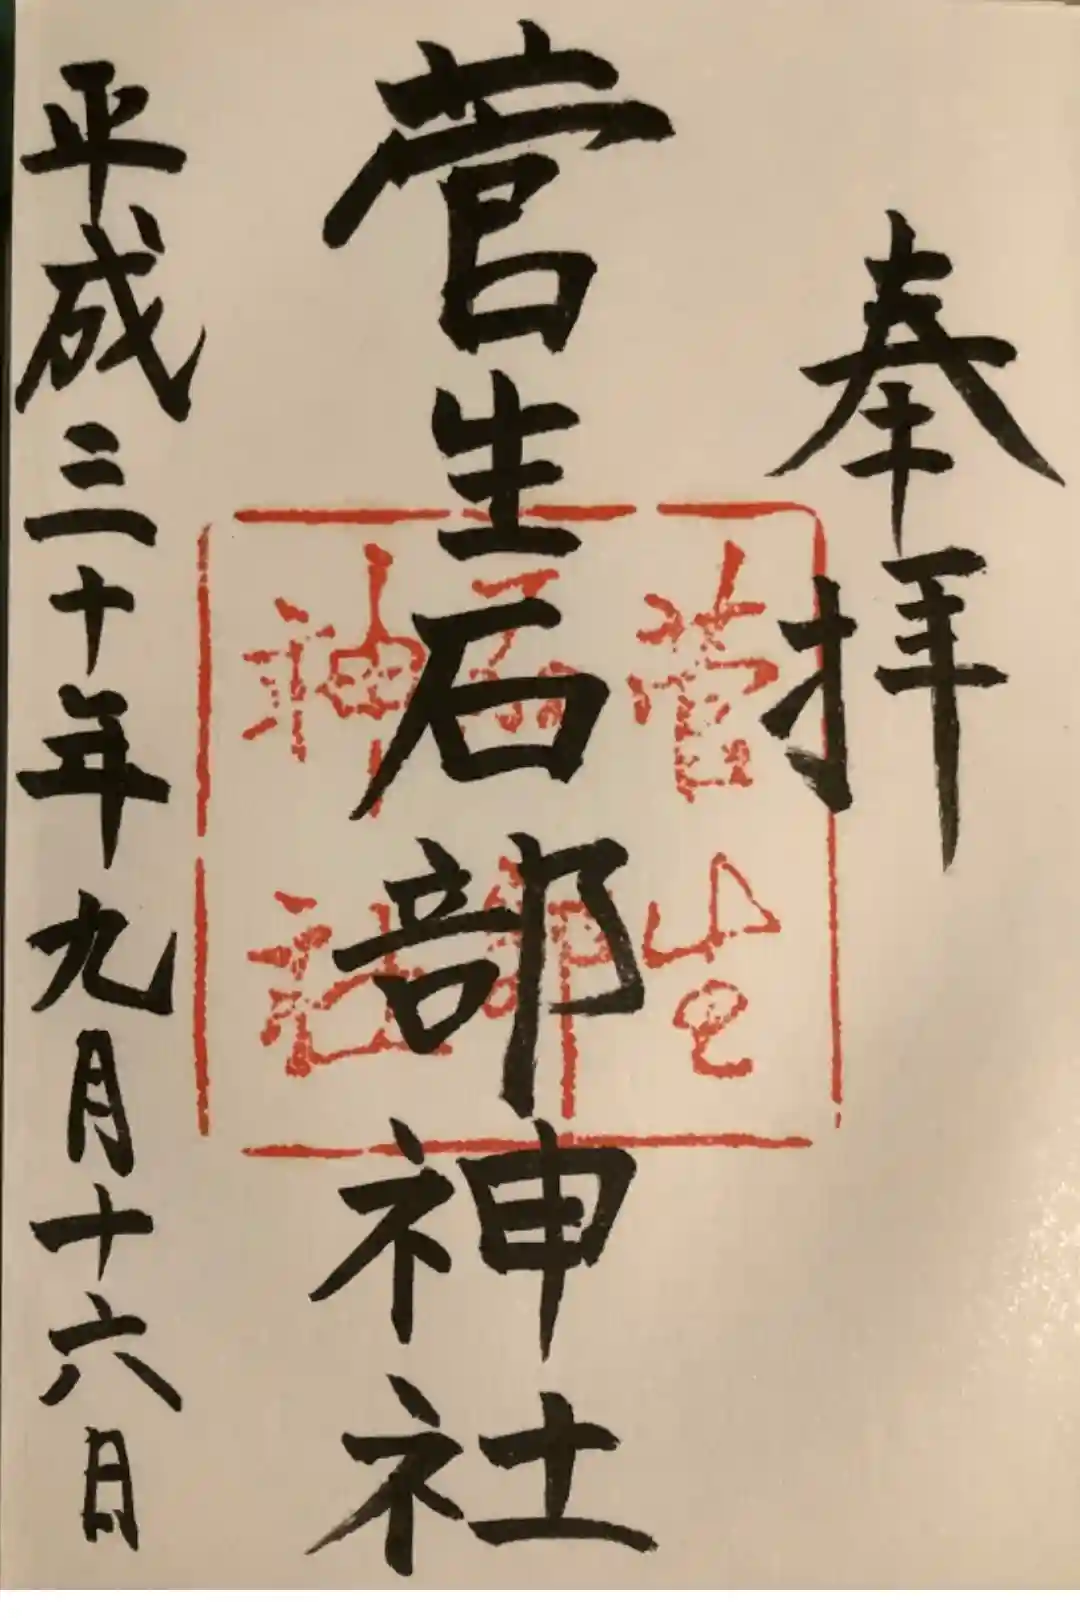 奉拝
菅生石部神社
平成三十年九月十六日
菅生
石部
神社